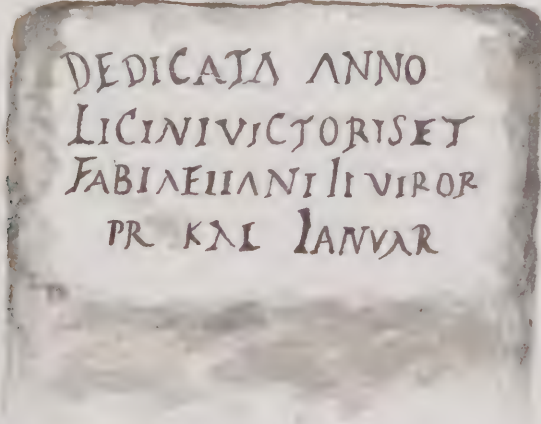 DEDICATA ANNO
LICINIVICTORISET
FABIAELIANI II VIROR
PR KAL IANVAR